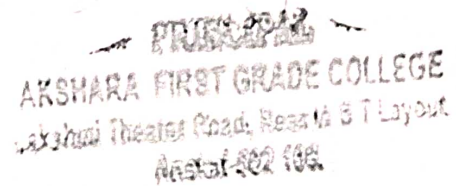 PRINCIPAL
AKSHARA FIRST GRADE COLLEGE
Lakshmi Theater Road, Near M S T Layout